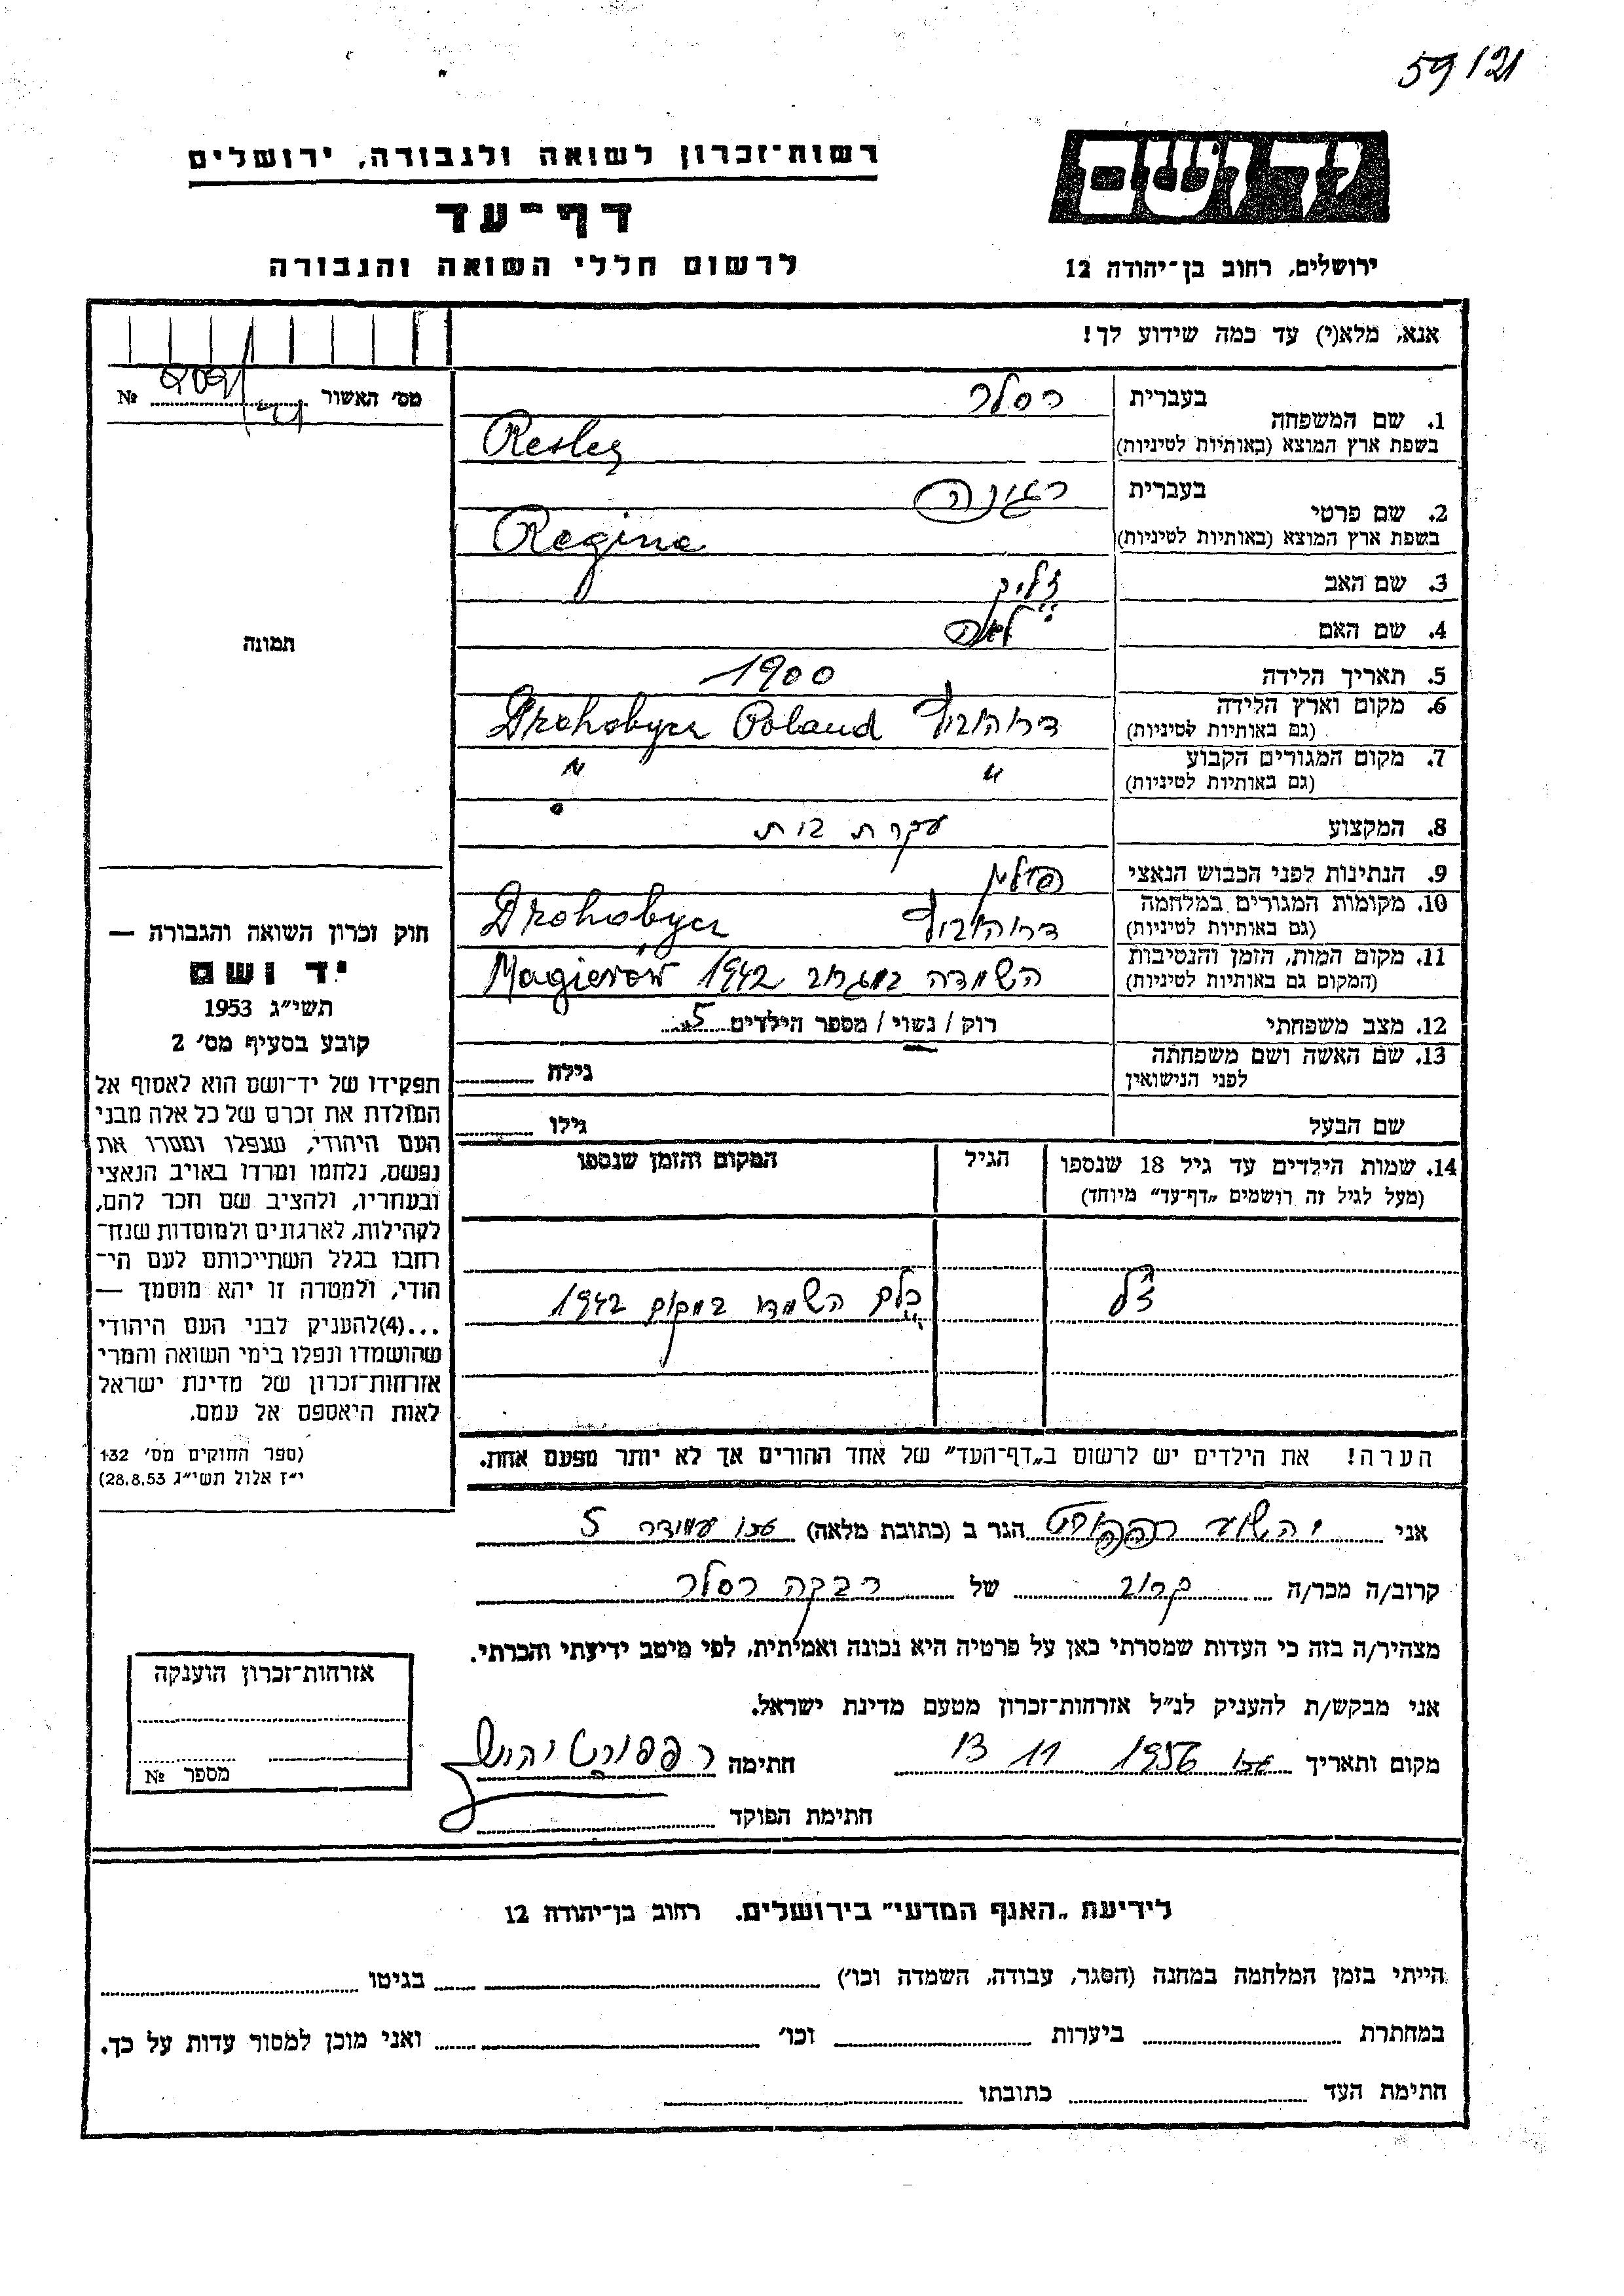 59/21
רשות־זכרון לשואה ולגבורה, ירושלים
יד ושם
דף־עד
לרשום חללי השואה והגבורה
ירושלים, רחוב בן־יהודה 12
אנא, מלא(י) עד כמה שידוע לך!
מס׳ האשור № 
בעברית רסלר
1. שם המשפחה
בשפת ארץ המוצא (באותיות לטיניות) Resler
בעברית רגינה
2. שם פרטי
בשפת ארץ המוצא (באותיות לטיניות) Regina
3. שם האב זליג
4. שם האם לאה
תמונה
5. תאריך הלידה 1900
6. מקום וארץ הלידה
(גם באותיות לטיניות) דרוהוביץ Drohobycz Poland
7. מקום המגורים הקבוע
(גם באותיות לטיניות) " "
8. המקצוע עקרת בית
9. הנתינות לפני הכבוש הנאצי פולין
10. מקומות המגורים במלחמה
(גם באותיות לטיניות) דרוהוביץ Drohobycz
11. מקום המות, הזמן והנסיבות
(המקום גם באותיות לטיניות) השמדה במגרוב 1942 Magierów
12. מצב משפחתי רוק / נשוי / מספר הילדים 5
13. שם האשה ושם משפחתה
לפני הנישואין גילה
שם הבעל גילו
14. שמות הילדים עד גיל 18 שנספו הגיל המקום והזמן שנספו
(מעל לגיל זה רושמים „דף־עד" מיוחד)
כלם השמדו במקום 1942
הערה! את הילדים יש לרשום ב„דף־העד" של אחד ההורים אך לא יותר מפעם אחת.
חוק זכרון השואה והגבורה —
יד ושם
תשי״ג 1953
קובע בסעיף מס׳ 2
תפקידו של יד־ושם הוא לאסוף אל
המולדת את זכרם של כל אלה מבני
העם היהודי, שנפלו ומסרו את
נפשם, נלחמו ומרדו באויב הנאצי
ובעוזריו, ולהציב שם וזכר להם,
לקהילות, לארגונים ולמוסדות שנח־
רבו בגלל השתייכותם לעם הי־
הודי, ולמטרה זו יהא מוסמך —
...(4) להעניק לבני העם היהודי
שהושמדו ונפלו בימי השואה והמרי
אזרחות־זכרון של מדינת ישראל
לאות היאספם אל עמם.
(ספר החוקים מס׳ 132
י״ז אלול תשי״ג 28.8.53)
אני יהושע רפפורט הגר ב (כתובת מלאה) עכו עמידר 5
קרוב/ה מכר/ה קרוב של רבקה רסלר
מצהיר/ה בזה כי העדות שמסרתי כאן על פרטיה היא נכונה ואמיתית, לפי מיטב ידיעתי והכרתי.
אני מבקש/ת להעניק לנ״ל אזרחות־זכרון מטעם מדינת ישראל.
מקום ותאריך עכו 1956 11 13 חתימה רפפורט יהושע
חתימת הפוקד
אזרחות־זכרון הוענקה
מספר №
לידיעת „האגף המדעי" בירושלים, רחוב בן־יהודה 12
הייתי בזמן המלחמה במחנה (הסגר, עבודה, השמדה וכו׳) בגיטו
במחתרת ביערות וכו׳ ואני מוכן למסור עדות על כך.
חתימת העד כתובתו